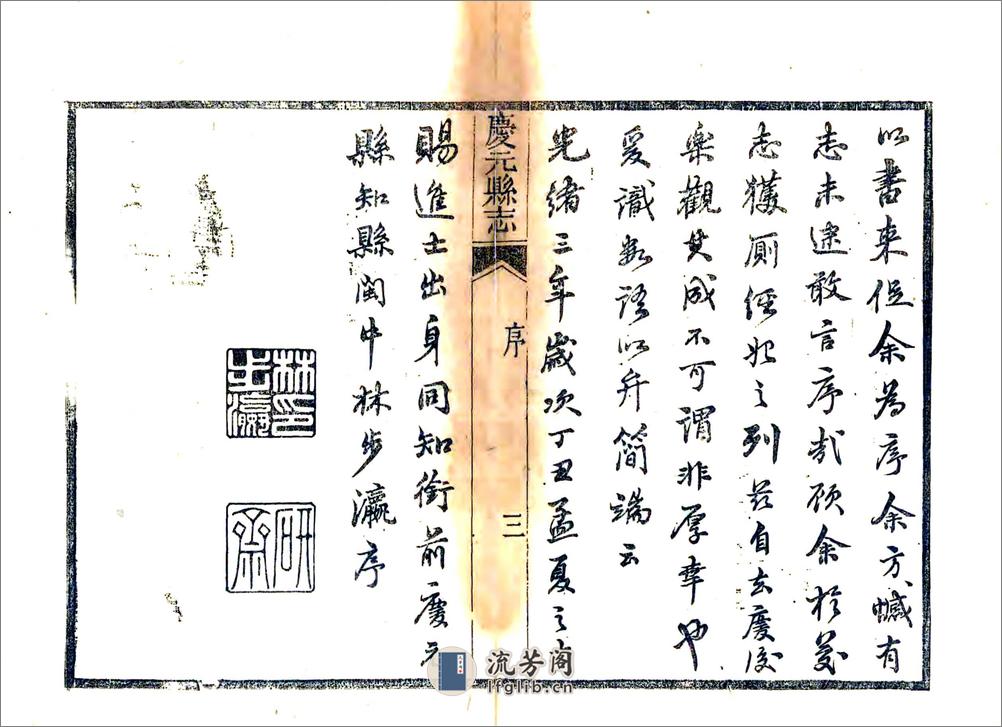 以書來促余為序余方憾有
志未逮敢言序哉顧余於茲
志獲廁經始之列茲自去慶後
樂觀其成不可謂非厚幸也
爰識數語以弁簡端云
光緒三年歲次丁丑孟夏之
慶元縣志
序
三
賜進士出身同知銜前慶元
縣知縣閩中林步瀛序
林印步瀛
研齋
流芳阁
lfglib.cn